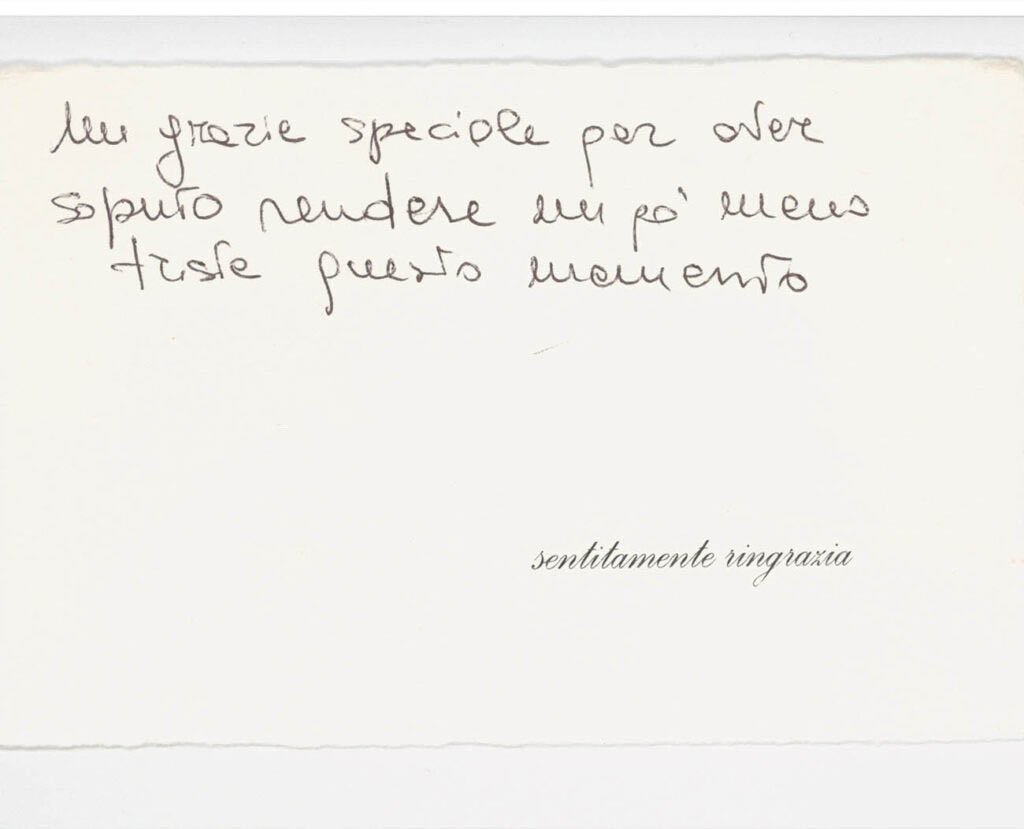 Un grazie speciale per aver
saputo rendere un pò meno
triste questo momento
sentitamente ringrazia